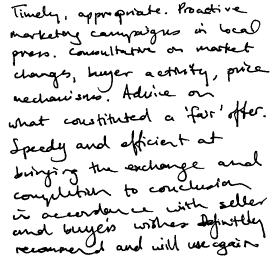 Timely, appropriate. Proactive
marketing campaigns in local
press. Consultation on market
changes, buyer activity, price
mechanisms. Advice on
what constituted a 'fair' offer.
Speedy and efficient at
bringing the exchange and
completion to conclusion
in accordance with seller
and buyers wishes Definitely
recommend and will use again